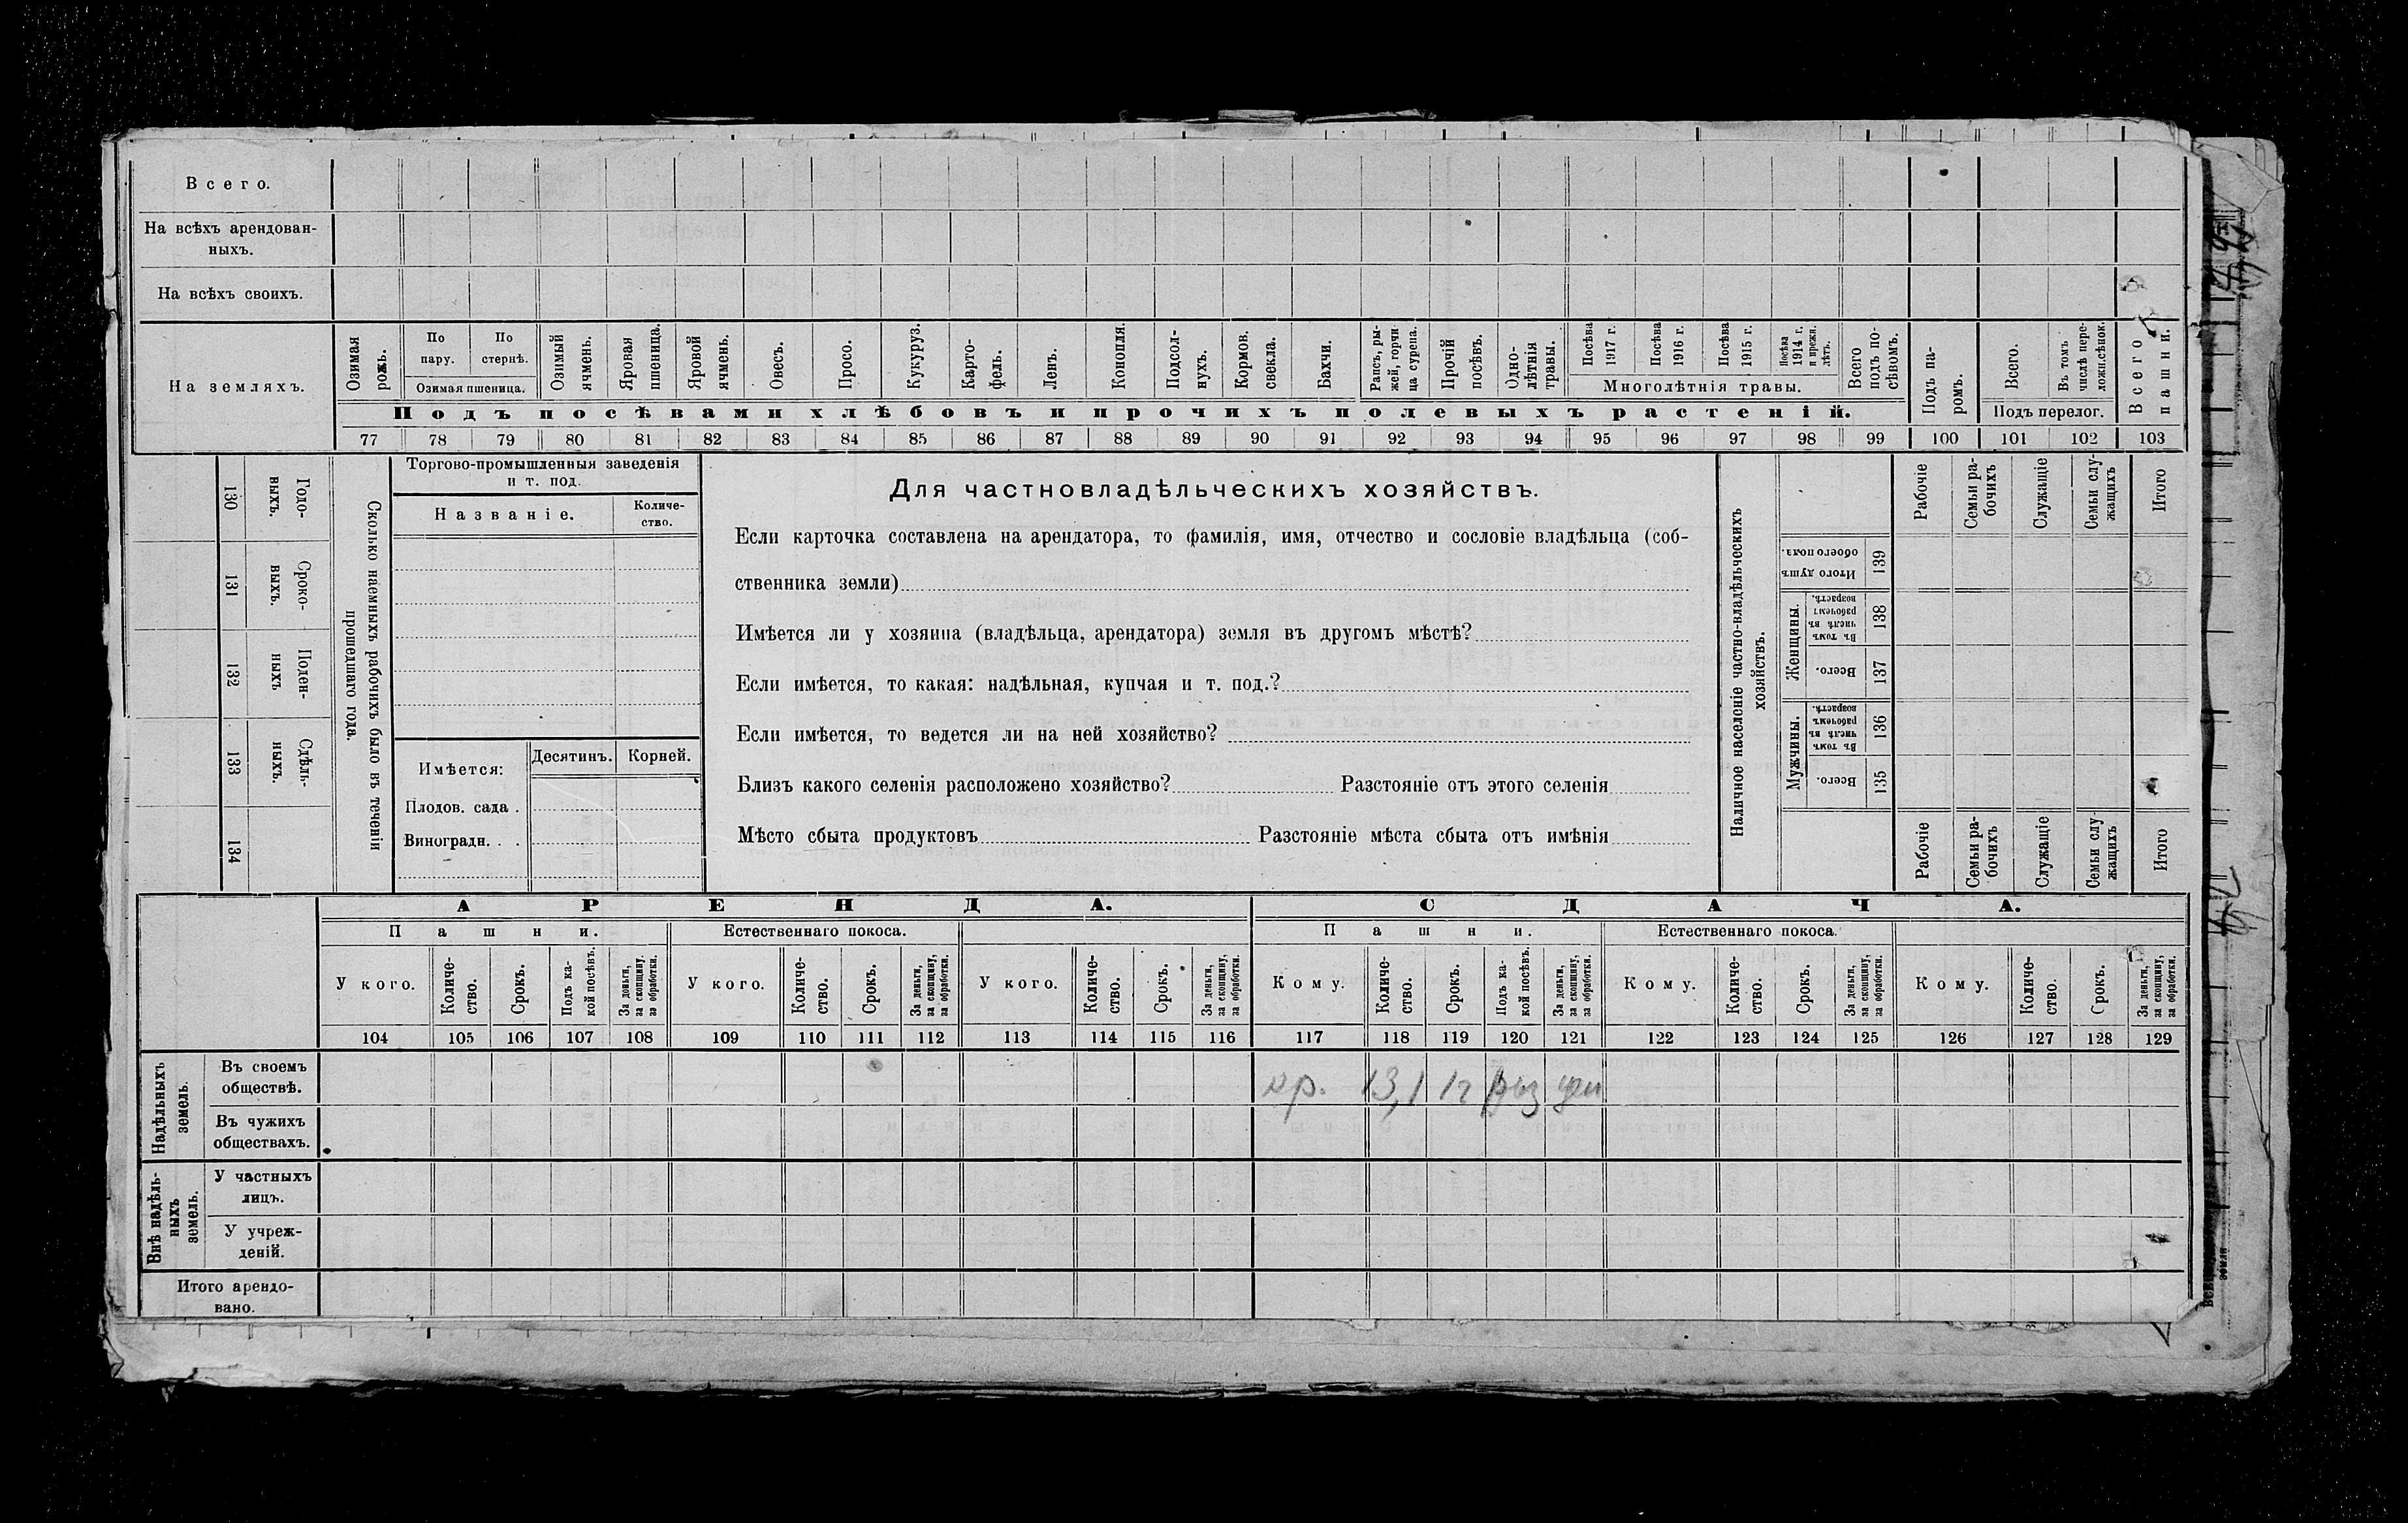 Всего.
На всѣхъ арендован-
ныхъ.
На всѣхъ своихъ.
На земляхъ.
Озимая рожь.
По пару.
По стернѣ.
Озимая пшеница.
Озимый ячмень.
Яровая пшеница.
Яровой ячмень.
Овесъ.
Просо.
Кукуруз.
Карто-
фель.
Ленъ.
Конопля.
Подсол-
нухъ.
Кормов. свекла.
Бахчи.
Рапсъ, ры-
жей, горчи-
ца сурепа.
Прочій посѣвъ.
Одно-
лѣтнія травы.
Посѣва 1917 г.
Посѣва 1916 г.
Посѣва 1915 г.
Посѣва 1914 г. и прежн. лѣтъ.
Многолѣтнія травы.
Всего подъ по-
сѣвомъ.
Подъ посѣвами хлѣбовъ и прочихъ полевыхъ растеній.
Подъ па-
ромъ.
Всего.
Въ томъ числѣ пере-
ложн.сѣнок.
Подъ перелог.
Всего пашни.
77 78 79 80 81 82 83 84 85 86 87 88 89 90 91 92 93 94 95 96 97 98 99 100 101 102 103
130 Годо-
выхъ.
131 Сроко-
выхъ.
132 Поден-
ныхъ
133 Сдѣль-
ныхъ.
134
Сколько наемныхъ рабочихъ было въ теченіи
прошедшаго года.
Торгово-промышленныя заведенія
и т. под.
Названіе.
Количе-
ство.
Имѣется:
Десятинъ.
Корней.
Плодов. сада .
Виноградн. . .
Для частновладѣльческихъ хозяйствъ.
Если карточка составлена на арендатора, то фамилія, имя, отчество и сословіе владѣльца (соб-
ственника земли)
Имѣется ли у хозяина (владѣльца, арендатора) земля въ другомъ мѣстѣ?
Если имѣется, то какая: надѣльная, купчая и т. под.?
Если имѣется, то ведется ли на ней хозяйство?
Близъ какого селенія расположено хозяйство? Разстояніе отъ этого селенія
Мѣсто сбыта продуктовъ Разстояніе мѣста сбыта отъ имѣнія
Наличное населеніе частно-владѣльческихъ
хозяйствъ.
Рабочіе
Семьи ра-
бочихъ
Служащіе
Семьи слу-
жащихъ
Итого
Итого душъ обоего пола. 139
Женщины.
Въ томъ числѣ въ рабочемъ возрастѣ. 138
Всего. 137
Мужчины.
Въ томъ числѣ въ рабочемъ возрастѣ. 136
Всего. 135
Рабочіе
Семьи ра-
бочихъ
Служащіе
Семьи слу
жащихъ
Итого
АРЕНДА.
СДАЧА.
Пашни.
Естественнаго покоса.
Пашни.
Естественнаго покоса.
У кого.
Количе-
ство.
Срокъ.
Подъ ка-
кой посѣвъ.
За деньги, за скопщину, за обработки.
У кого.
Количе-
ство.
Срокъ.
За деньги, за скопщину, за обработки.
У кого.
Количе-
ство.
Срокъ.
За деньги, за скопщину, за обработки.
Кому.
Количе-
ство.
Срокъ.
Подъ ка-
кой посѣвъ.
За деньги, за скопщину, за обработки.
Кому.
Количе-
ство.
Срокъ.
За деньги, за скопщину, за обработки.
Кому.
Количе-
ство.
Срокъ.
За деньги, за скопщину, за обработки.
104 105 106 107 108 109 110 111 112 113 114 115 116 117 118 119 120 121 122 123 124 125 126 127 128 129
Надѣльныхъ
земель.
Въ своемъ
обществѣ.
кр. 13,1 1г
Въ чужихъ
обществахъ.
Внѣ надѣль-
ныхъ
земель.
У частныхъ
лицъ.
У учреж-
деній.
Итого арендо-
вано.
земли